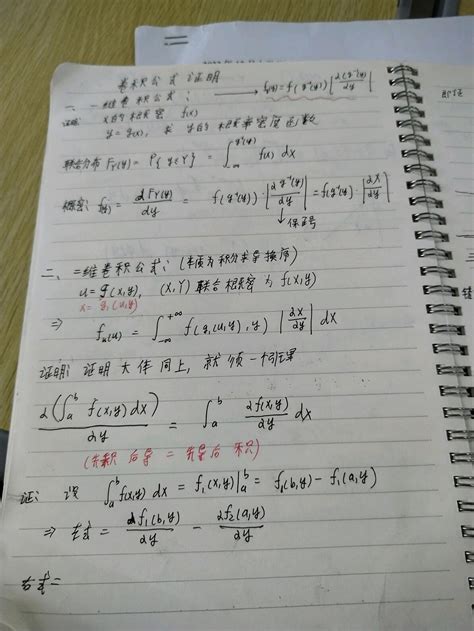 卷积公式证明
一、一维卷积公式: → f(y) = f(g⁻¹(y)) |∂(g⁻¹(y))/∂y|
证明: X的概密 f(x)
y = g(x), 求 y的概率密度函数
联合分布 F_Y(y) = P{y∈Y} = ∫_{-∞}^{g⁻¹(y)} f(x) dx
概密: f(y) = ∂F_Y(y)/∂y = f(g⁻¹(y)) · |∂g⁻¹(y)/∂y| = f(g⁻¹(y)) · |∂X/∂y|
↓保号
二、二维卷积公式: (本质为积分求导换序)
u = g(x,y), (X,Y) 联合概密为 f(x,y)
x = g₁(u,y)
⇒ f_u(u) = ∫_{-∞}^{+∞} f(g₁(u,y), y) |∂x/∂y| dx
证明: 证明大体同上, 就须一引理
∂(∫_a^b f(x,y) dx)/∂y = ∫_a^b ∂f(x,y)/∂y dx
(先积后导 = 先导后积)
证: 设 ∫_a^b f(x,y) dx = f₁(x,y)|_a^b = f₁(b,y) - f₁(a,y)
⇒ 左式 = ∂f₁(b,y)/∂y - ∂f₂(a,y)/∂y
右式 =
即证